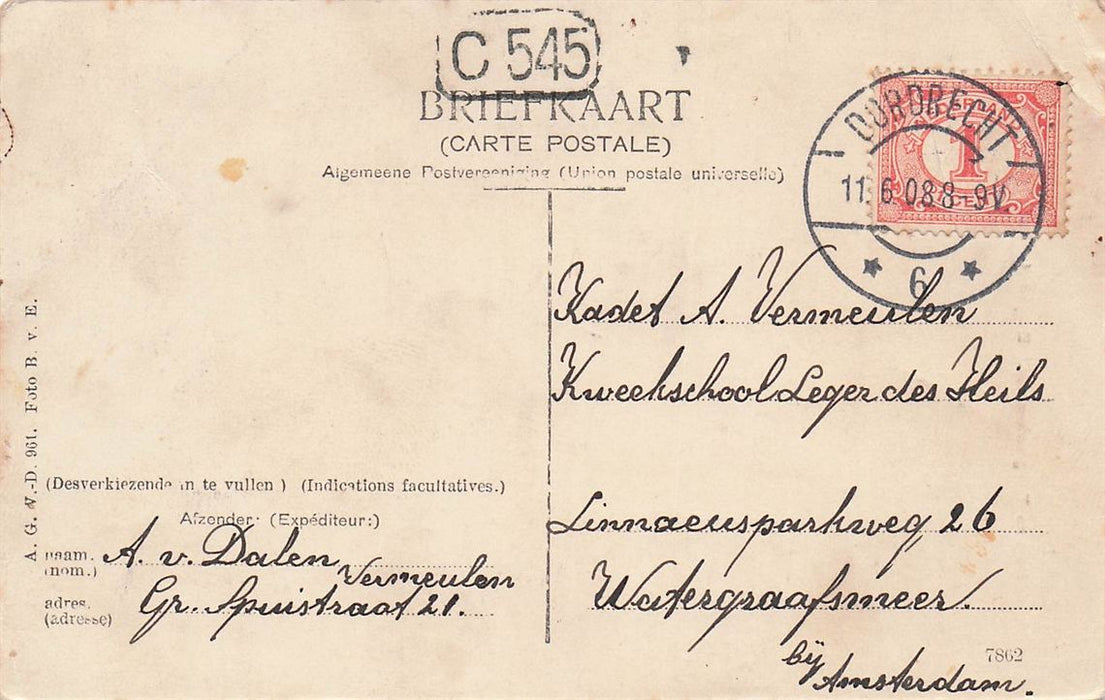 C 545
BRIEFKAART
(CARTE POSTALE)
Algemeene Postvereeniging (Union postale universelle)
DORDRECHT
11. 6. 08 8-9V
6
1
CENT
Kadet A. Vermeulen
Kweekschool Leger des Heils
Linnaeusparkweg 26
Watergraafsmeer.
bij Amsterdam.
7862
A. G. V.-D. 961. Foto B. v. E.
(Desverkiezende in te vullen) (Indications facultatives.)
Afzender: (Expéditeur:)
naam. A. v. Dalen
(nom.) Vermeulen
adres. Gr. Spuistraat 21.
(adresse)